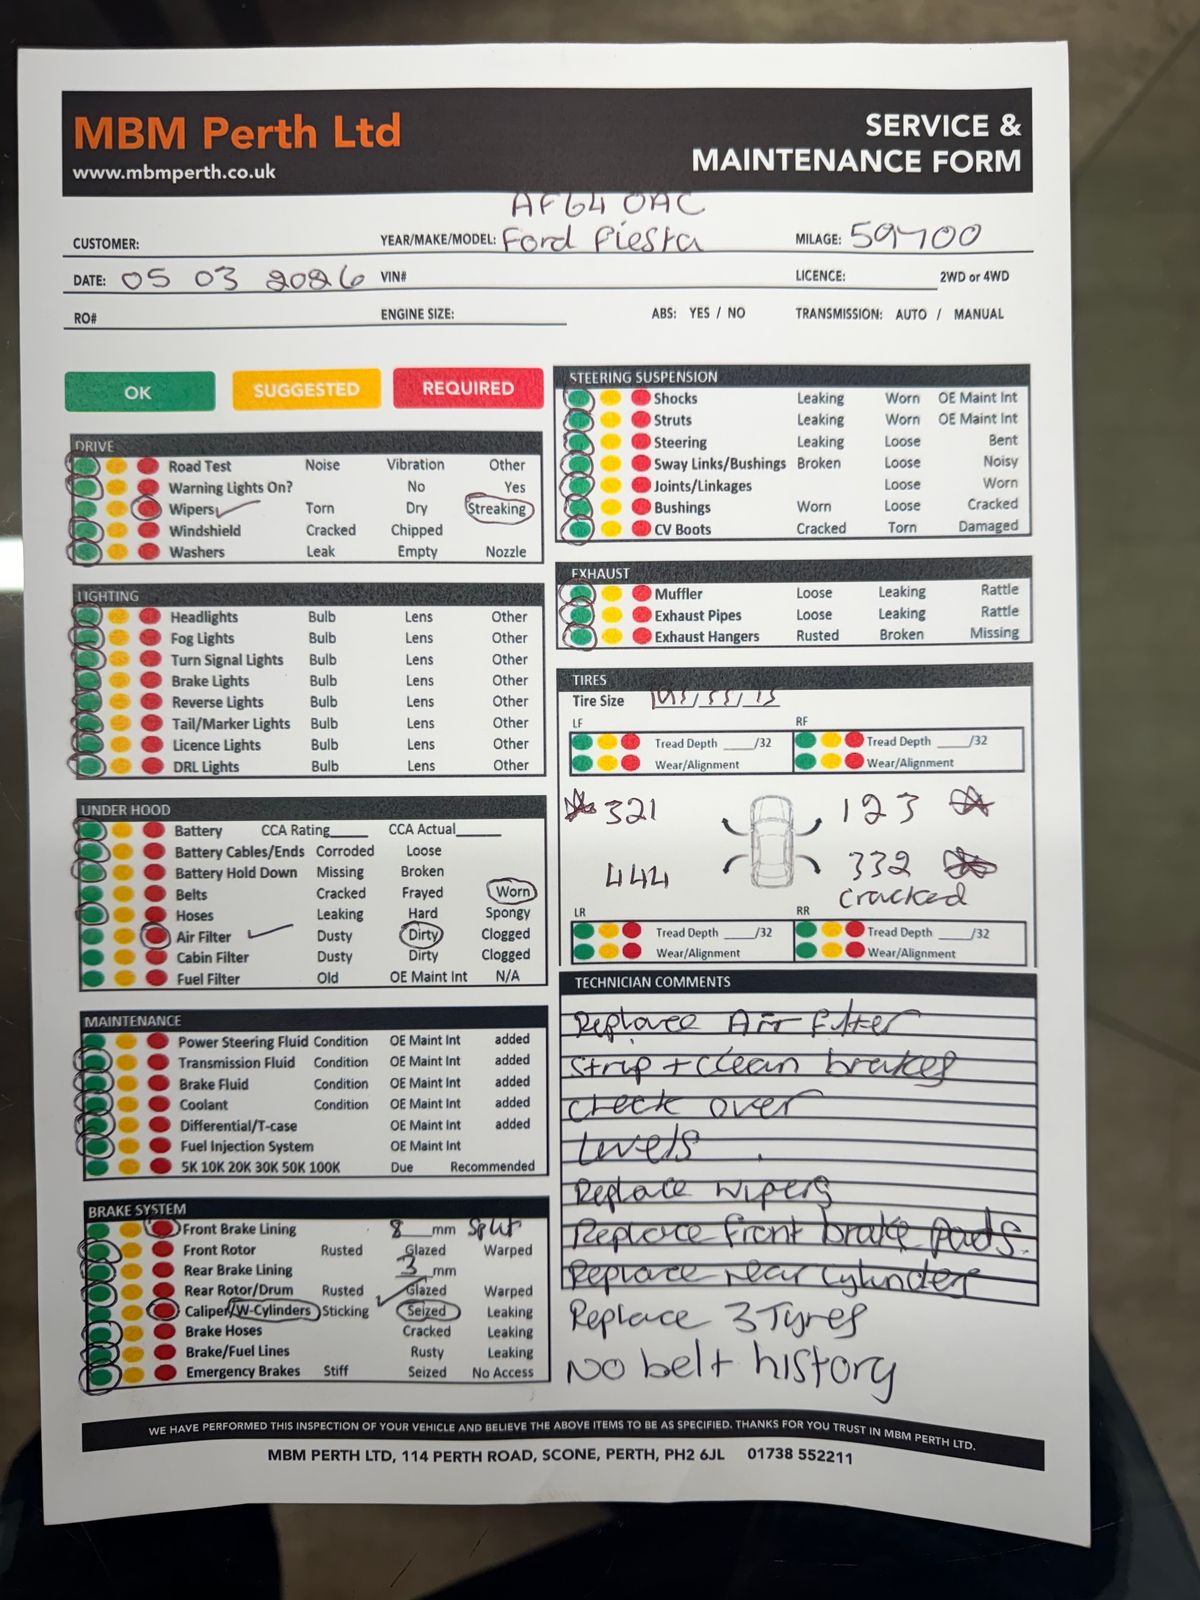 MBM Perth Ltd
www.mbmperth.co.uk
SERVICE &
MAINTENANCE FORM
AF64 OAC
CUSTOMER: YEAR/MAKE/MODEL: Ford Fiesta MILAGE: 59700
DATE: 05 03 2026 VIN# LICENCE: 2WD or 4WD
RO# ENGINE SIZE: ABS: YES / NO TRANSMISSION: AUTO / MANUAL
OK SUGGESTED REQUIRED
DRIVE
Road Test Noise Vibration Other
Warning Lights On? No Yes
Wipers Torn Dry Streaking
Windshield Cracked Chipped
Washers Leak Empty Nozzle
LIGHTING
Headlights Bulb Lens Other
Fog Lights Bulb Lens Other
Turn Signal Lights Bulb Lens Other
Brake Lights Bulb Lens Other
Reverse Lights Bulb Lens Other
Tail/Marker Lights Bulb Lens Other
Licence Lights Bulb Lens Other
DRL Lights Bulb Lens Other
UNDER HOOD
Battery CCA Rating____ CCA Actual_____
Battery Cables/Ends Corroded Loose
Battery Hold Down Missing Broken
Belts Cracked Frayed Worn
Hoses Leaking Hard Spongy
Air Filter Dusty Dirty Clogged
Cabin Filter Dusty Dirty Clogged
Fuel Filter Old OE Maint Int N/A
MAINTENANCE
Power Steering Fluid Condition OE Maint Int added
Transmission Fluid Condition OE Maint Int added
Brake Fluid Condition OE Maint Int added
Coolant Condition OE Maint Int added
Differential/T-case OE Maint Int added
Fuel Injection System OE Maint Int
5K 10K 20K 30K 50K 100K Due Recommended
BRAKE SYSTEM
Front Brake Lining 8 mm Split
Front Rotor Rusted Glazed Warped
Rear Brake Lining 3 mm
Rear Rotor/Drum Rusted Glazed Warped
Caliper/W-Cylinders Sticking Seized Leaking
Brake Hoses Cracked Leaking
Brake/Fuel Lines Rusty Leaking
Emergency Brakes Stiff Seized No Access
STEERING SUSPENSION
Shocks Leaking Worn OE Maint Int
Struts Leaking Worn OE Maint Int
Steering Leaking Loose Bent
Sway Links/Bushings Broken Loose Noisy
Joints/Linkages Loose Worn
Bushings Worn Loose Cracked
CV Boots Cracked Torn Damaged
EXHAUST
Muffler Loose Leaking Rattle
Exhaust Pipes Loose Leaking Rattle
Exhaust Hangers Rusted Broken Missing
TIRES
Tire Size 195/55/15
LF RF
Tread Depth ____/32 Tread Depth ____/32
Wear/Alignment Wear/Alignment
321 123
444 332
cracked
LR RR
Tread Depth ____/32 Tread Depth ____/32
Wear/Alignment Wear/Alignment
TECHNICIAN COMMENTS
Replace Air filter
Strip + Clean brakes
Check over
Levels.
Replace wipers
Replace front brake pads.
Replace rear cylinders
Replace 3 Tyres
No belt history
WE HAVE PERFORMED THIS INSPECTION OF YOUR VEHICLE AND BELIEVE THE ABOVE ITEMS TO BE AS SPECIFIED. THANKS FOR YOU TRUST IN MBM PERTH LTD.
MBM PERTH LTD, 114 PERTH ROAD, SCONE, PERTH, PH2 6JL 01738 552211